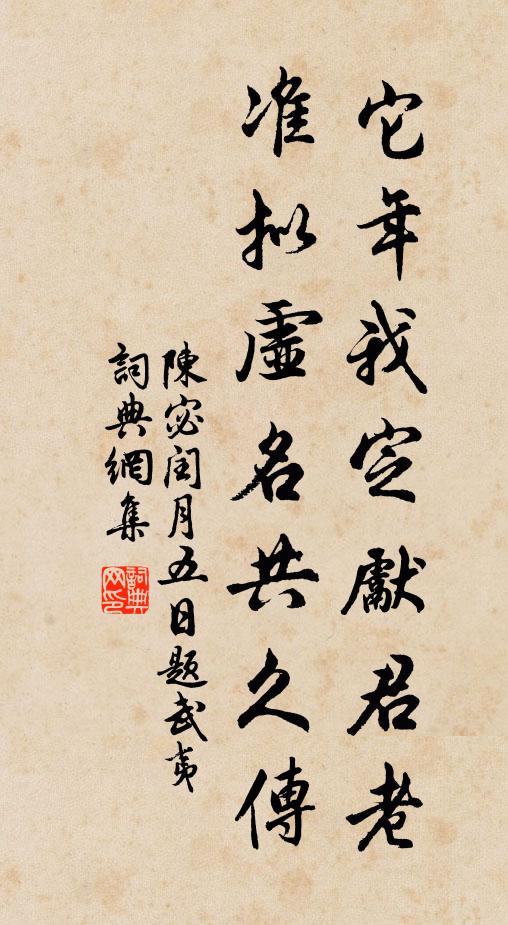 它年我定獻君老
准拟虛名共久傳
陳宓閏月五日題武夷
詞典網集
詞典
网印